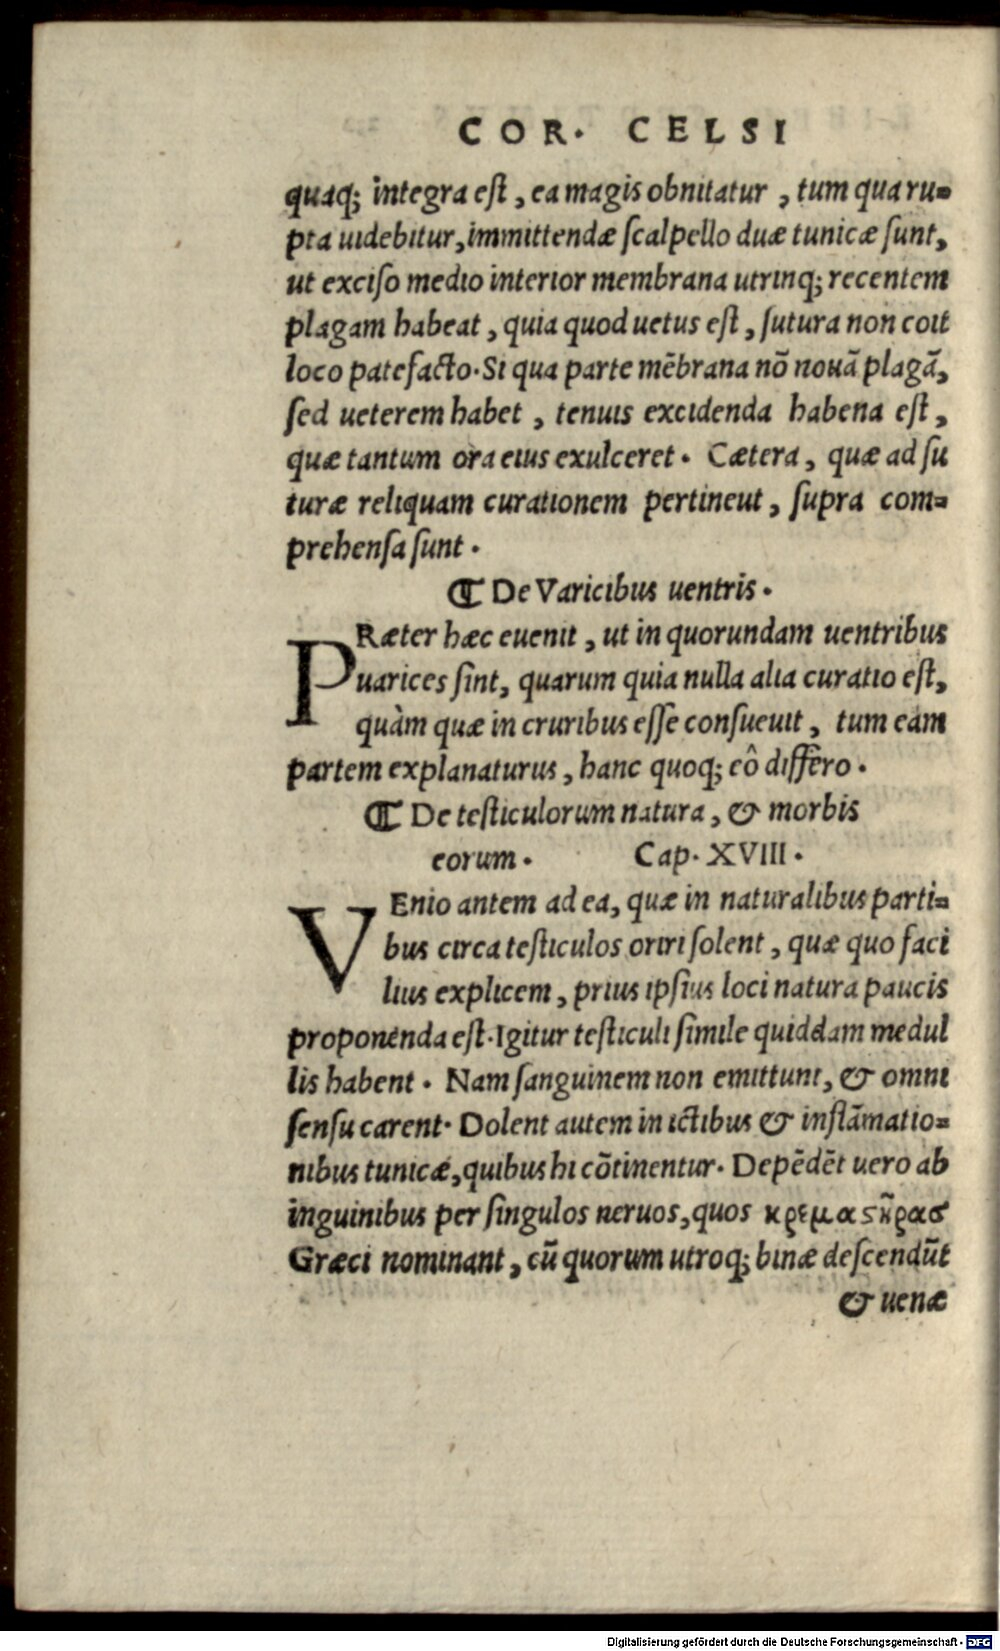 COR. CELSI
quaq; integra eſt, ea magis obnitatur, tum qua ru-
pta uidebitur, immittendæ ſcalpello duæ tunicæ ſunt,
ut exciſo medio interior membrana utrinq; recentem
plagam habeat, quia quod uetus eſt, ſutura non coit
loco patefacto. Si qua parte mēbrana nō nouā plagā,
ſed ueterem habet, tenuis excidenda habena eſt,
quæ tantum ora eius exulceret. Cætera, quæ ad ſu
turæ reliquam curationem pertineut, ſupra com-
prehenſa ſunt.
⁋ De Varicibus uentris.
PRæter hæc euenit, ut in quorundam uentribus
uarices ſint, quarum quia nulla alia curatio eſt,
quàm quæ in cruribus eſſe conſueuit, tum eam
partem explanaturus, hanc quoq; eô differo.
⁋ De teſticulorum natura, & morbis
eorum. Cap. XVIII.
VEnio antem ad ea, quæ in naturalibus parti-
bus circa teſticulos oriri ſolent, quæ quo faci
lius explicem, prius ipſius loci natura paucis
proponenda eſt. Igitur teſticuli ſimile quiddam medul
lis habent. Nam ſanguinem non emittunt, & omni
ſenſu carent. Dolent autem in ictibus & inflāmatio-
nibus tunicæ, quibus hi cōtinentur. Depēdēt uero ab
inguinibus per ſingulos neruos, quos κρεμαϛῆρας
Græci nominant, cū quorum utroq; binæ deſcendūt
& uenæ
Digitalisierung gefördert durch die Deutsche Forschungsgemeinschaft - DFG